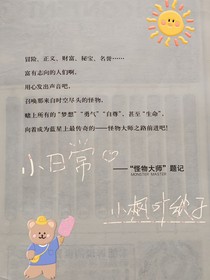 冒险、正义、财富、秘宝、名誉……
富有志向的人们啊，
用心发出声音吧，
召唤那来自时空尽头的怪物，
赌上所有的“梦想”“勇气”“自尊”，甚至“生命”，
向着成为蓝星上最传奇的——怪物大师之路前进吧！
小日常
——“怪物大师”题记
MONSTER MASTER
小枫叶